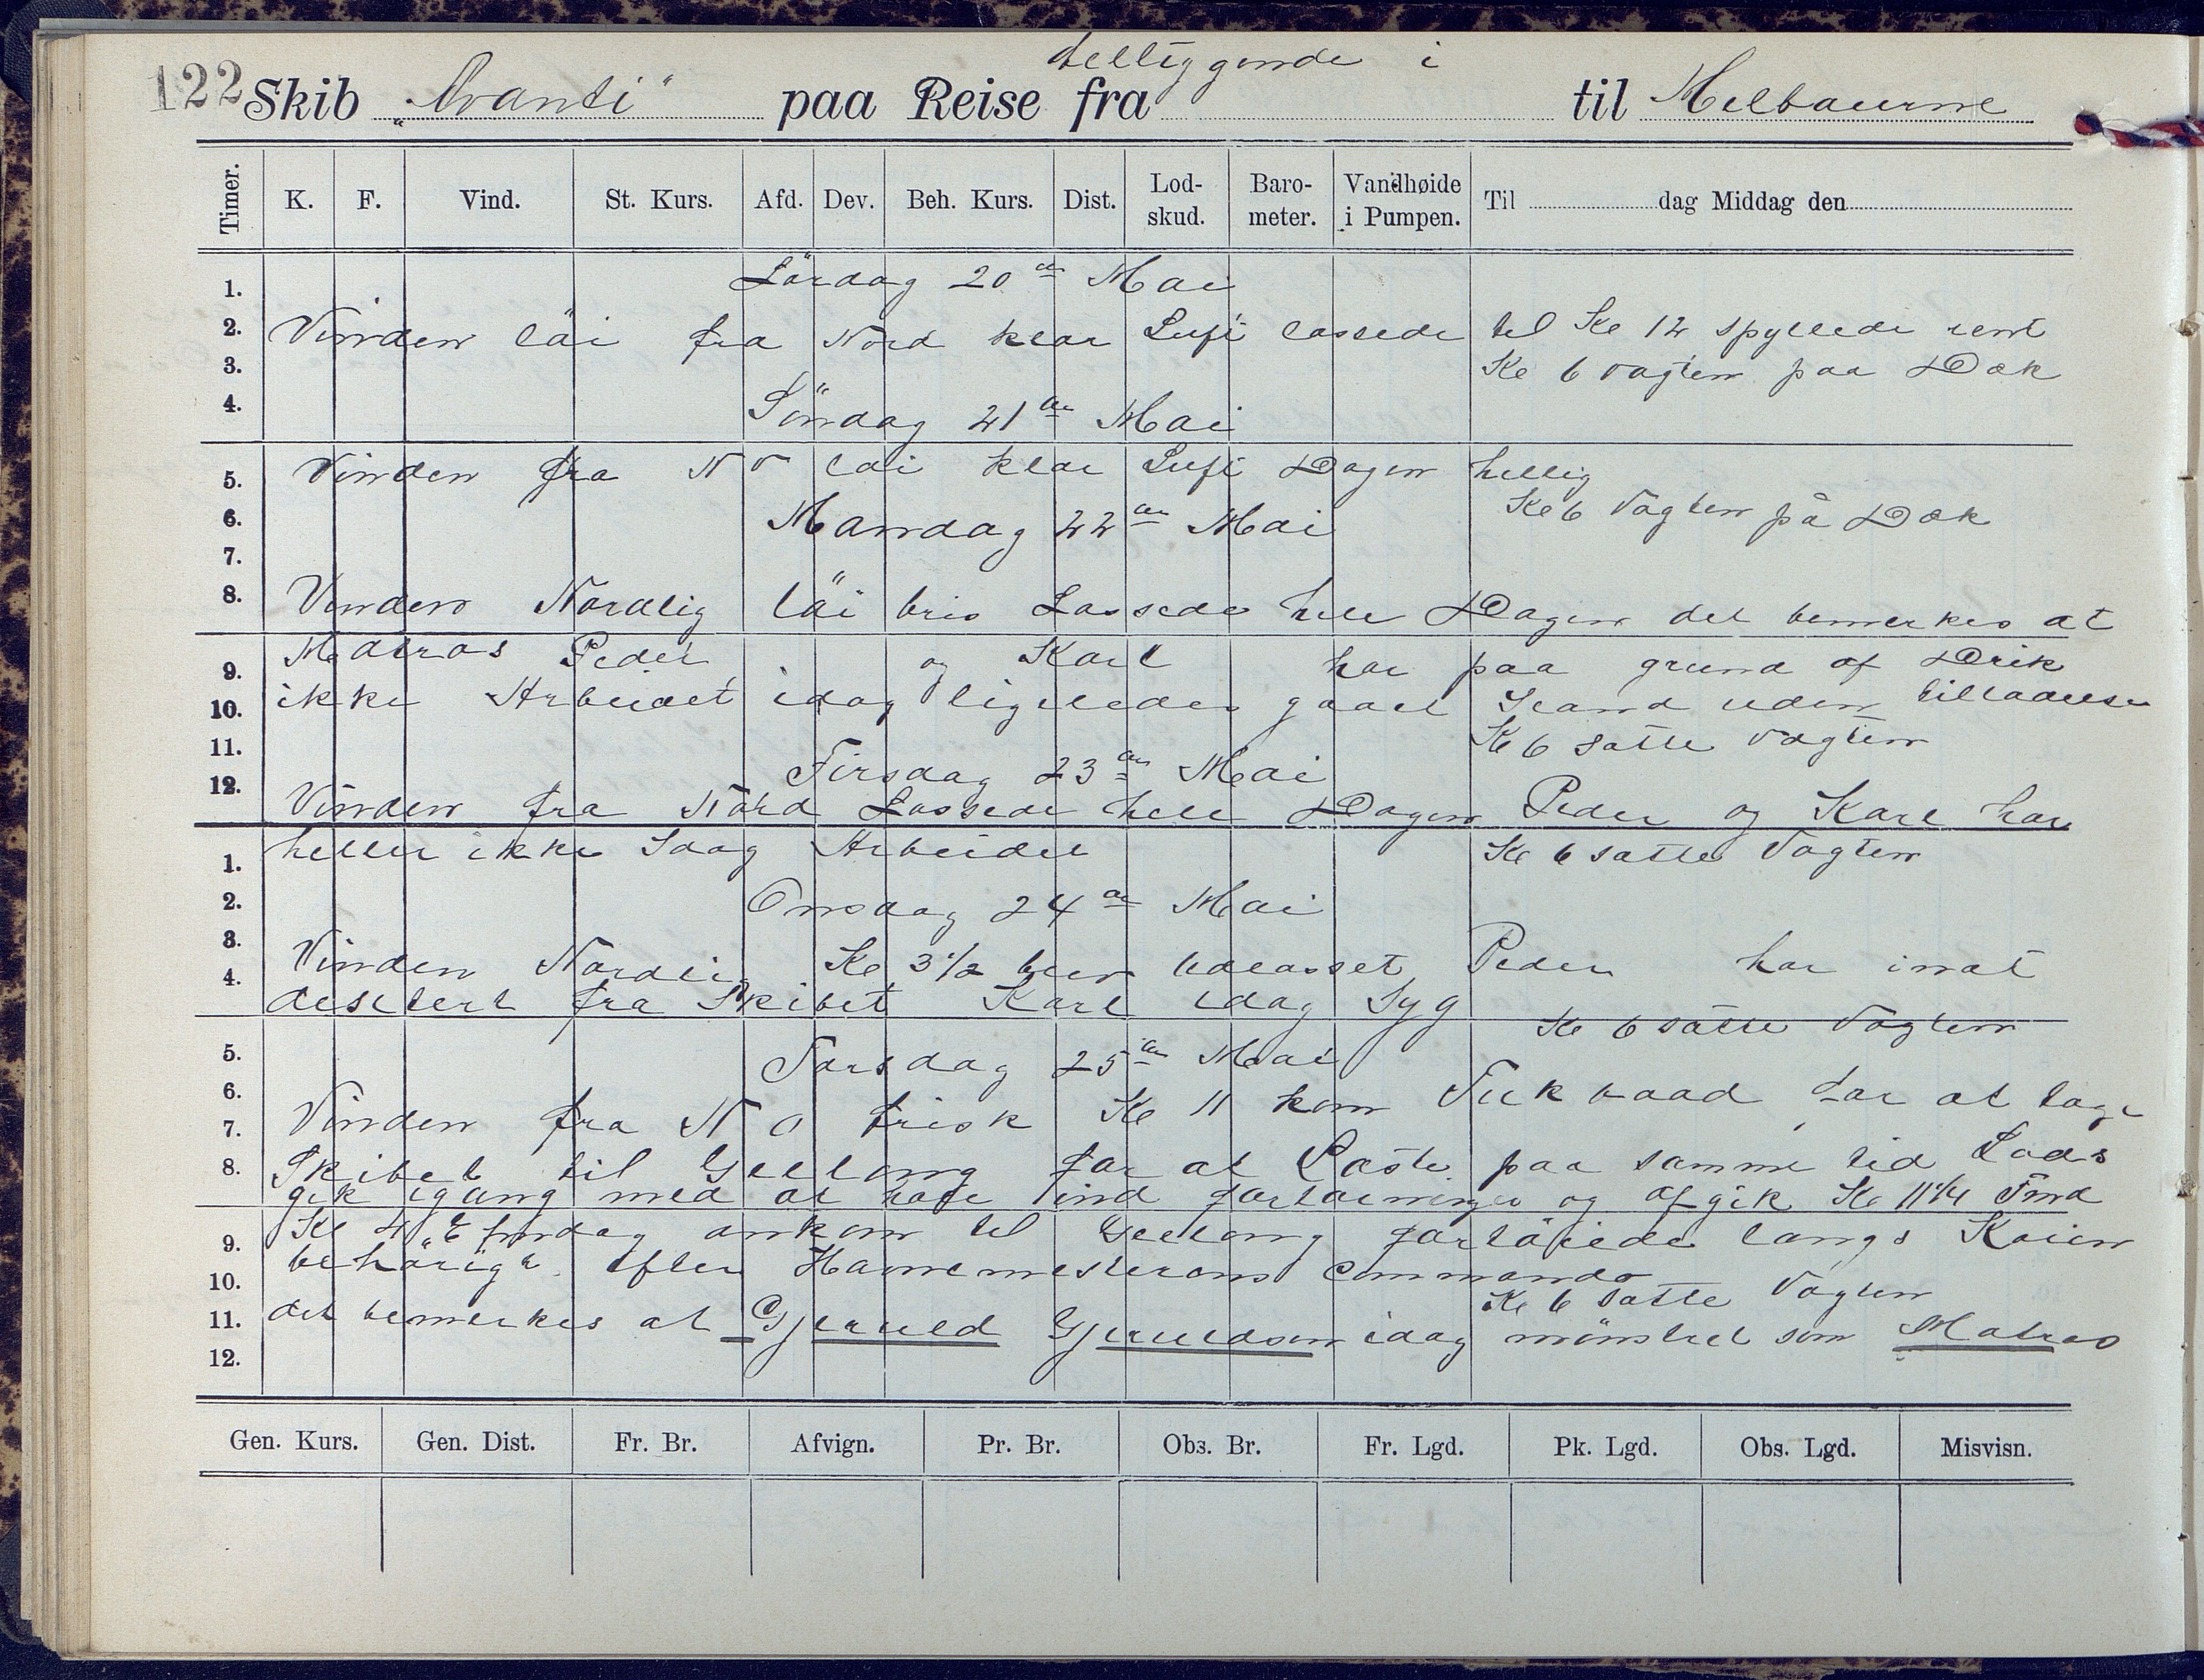 tilliggende i
122 Skib „Avanti" paa Reise fra til Melbaurne
Timer. K. F. Vind. St. Kurs. Afd. Dev. Beh. Kurs. Dist. Lod-skud. Baro-meter. Vandhøide i Pumpen. Til dag Middag den
1. Lördag 20de Mai
2. Vinden löi fra Nord klar Luft lossede til Kl 12 spyllede rent
3. Kl 6 vagten paa Dæk
4. Söndag 21de Mai
5. Vinden fra NV löi klar Luft Dagen hellig
6. Mandag 22de Mai Kl 6 Vagten på Dæk
7.
8. Vinden Nordlig löi bris Lossede hele Dagen det bemerkes at
9. Matros Peder og Karl har paa grund af Drik
10. ikke Arbeidet idag ligeledes gaaet Iland uden tilladelse
11. Kl 6 satte Vagten
Tirsdag 23de Mai
12. Vinden fra Nord Lossede hele Dagen Peder og Karl har
1. heller ikke Idag Arbeidet Kl 6 satte Vagten
2. Onsdag 24de Mai
3.
4. Vinden Nordlig Kl 3½ blev udlosset Peder har inat
desertert fra Skibet Karl idag Syg
Kl 6 satte Vagten
5. Torsdag 25de Mai
6.
7. Vinden fra NO frisk Kl 11 kom Tukbaad for at tage
8. Skibet til Geelong for at Laste paa samme tid Lods
gik igang med at hale ind fortøininger og afgik Kl 11¼ Fmd
9. Kl 4 Efmdag ankom til Geelong fortöiede langs Kaien
10. behörigt efter Havnemesterens Commando
Kl 6 satte Vagten
11. det bemerkes at Gjeruld Gjeruldsen idag mönstret som Matros
12.
Gen. Kurs. Gen. Dist. Fr. Br. Afvign. Pr. Br. Obs. Br. Fr. Lgd. Pk. Lgd. Obs. Lgd. Misvisn.